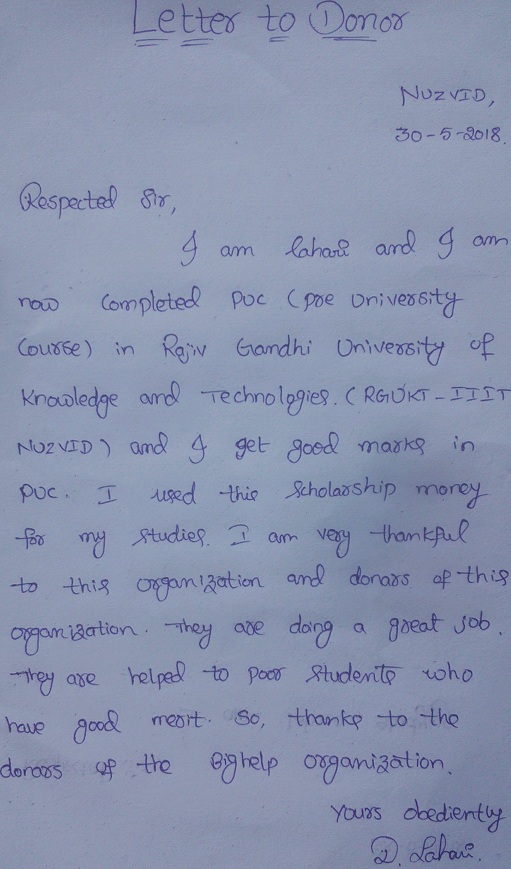 Letter to Donor
NUZVID,
30-5-2018.
Respected Sir,
I am lahari and I am
now completed PUC (pre University
Course) in Rajiv Gandhi University of
Knowledge and Technologies. (RGUKT-IIIT
NUZVID) and I get good marks in
PUC. I used this scholarship money
for my studies. I am very thankful
to this organization and donars of this
organization. They are doing a great job.
They are helped to poor students who
have good merit. So, thanks to the
donors of the Bighelp organization.
Yours obediently
D. Lahari.